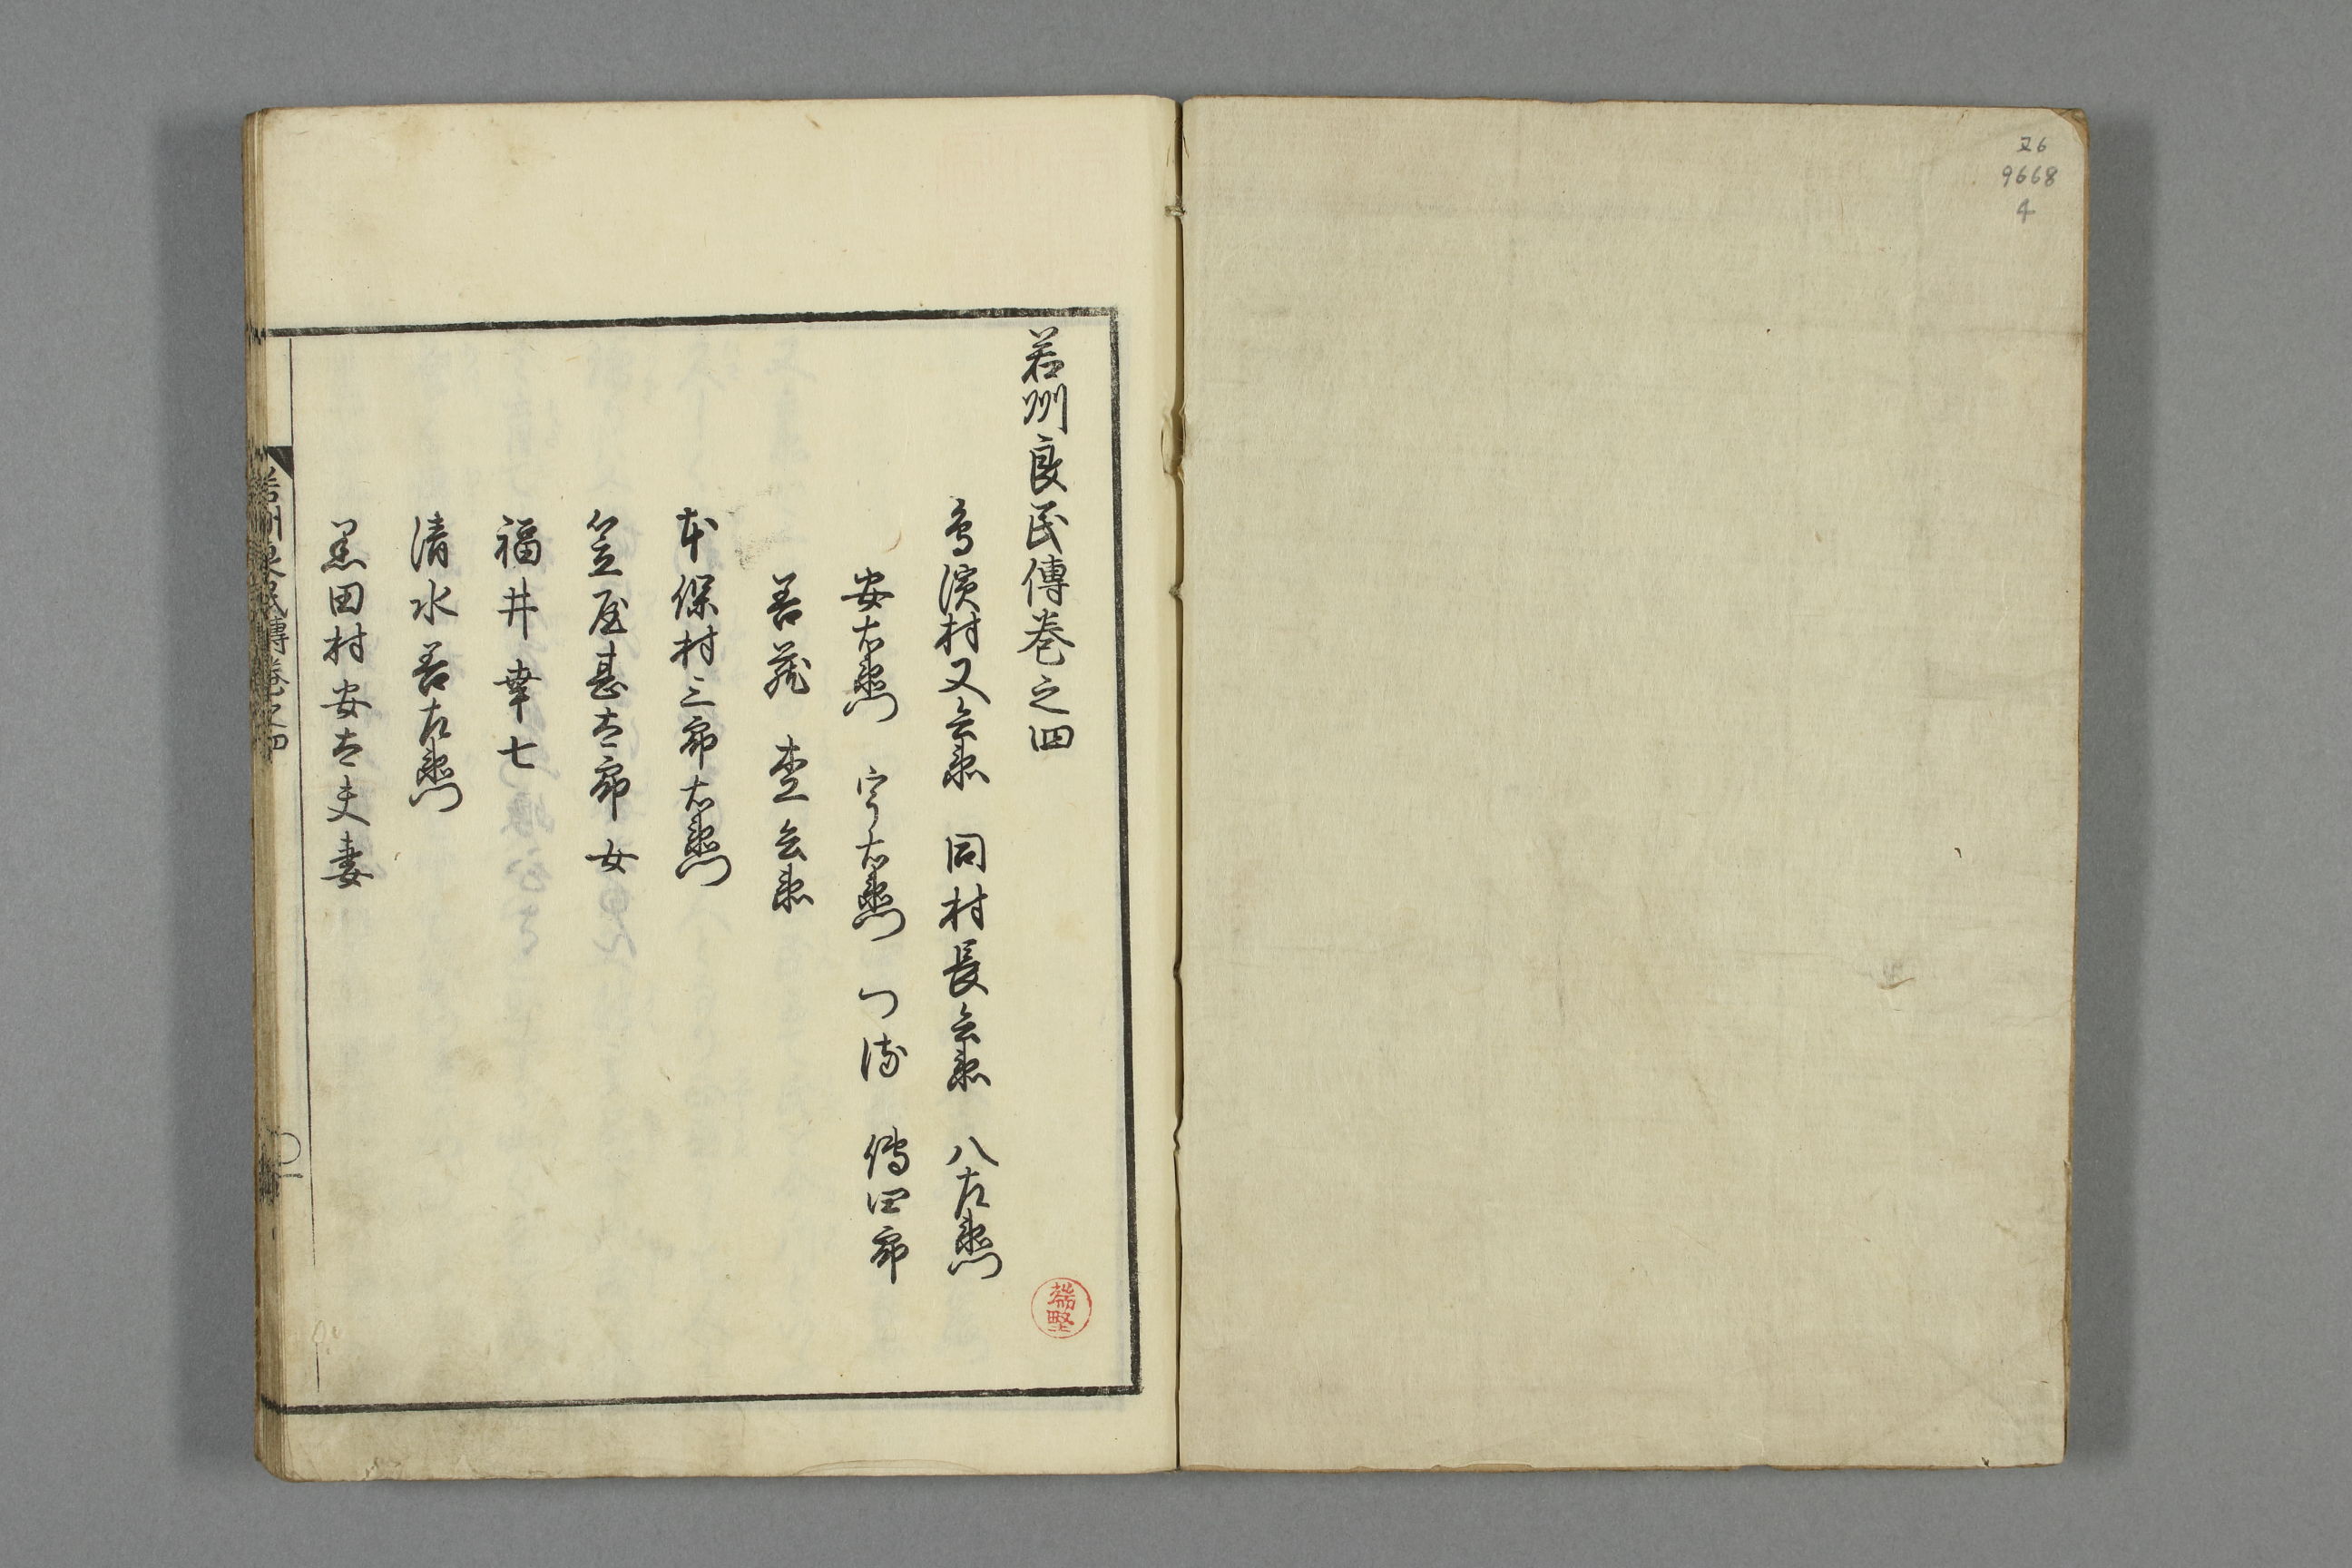 又6
9668
4
若州良民傳巻之四
鳥濱村又兵衛 同村長兵衛 八左衛門
安右衛門 宇右衛門 傳四郎
善蔵 杢兵衛
本保村三郎右衛門
笠屋甚太郎女
福井幸七
清水善左衛門
黒田村安太夫妻
若州良民傳巻之四
〇一